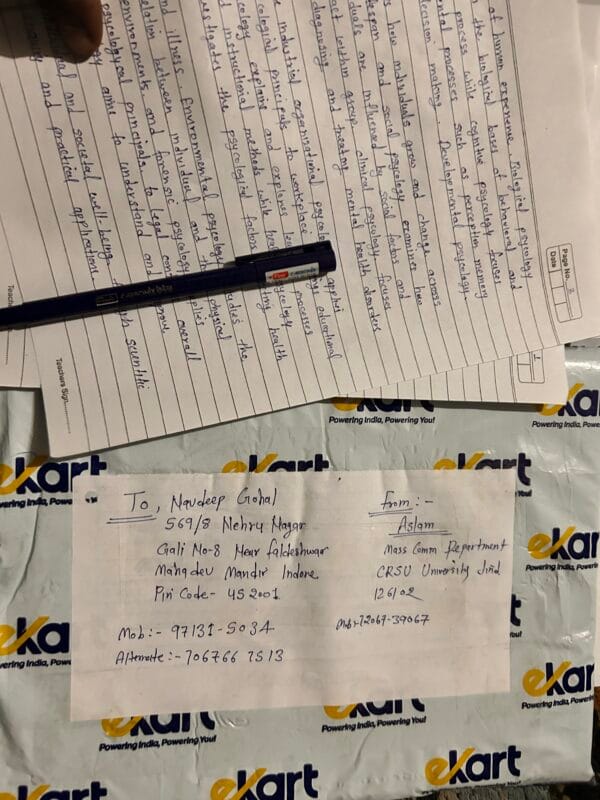 Page No. 2
Date
of human experience. Biological psycology
the biological bases of behavioral and
process while cognitive psycology focuses
mental processes such as perception memory
decision making. Developmental psycology
how individuals grow and change across
and social psycology examines how
duals are influenced by social factors and
act within group clinical psycology focuses
diagnosing and treating mental health disorders
industrial organisational psycology
cological principals to workplace educational
cology explains and explores processes
d instructional methods while health
investigates the psycological factors
and illness. Environmental psycology studies the
relation between individual and physical
environments and forensic psycology applies
psycological principals to legal
aims to understand and overall
and societal well-being scientific
and practical applications
Teachers Sign
Teache
ekart
Powering India, Powering You!
To, Navdeep Gohal
569/8 Nehru Nagar
Gali No-8 Near faldeshwar
Mahadev Mandir Indore
Pin Code- 452001
Mob:- 97131-5034
Alternate:- 706766 7513
From:-
Aslam
Mass Comm Department
CRSU University Jind
126102
Mob:- 72067-39067
ekart
Powering India, Powering You!
ekart